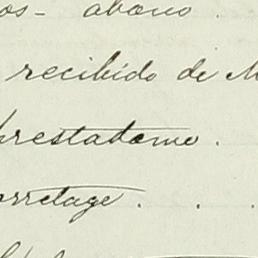 os - abono .
recibido de M
prestadome .
orretage . . .